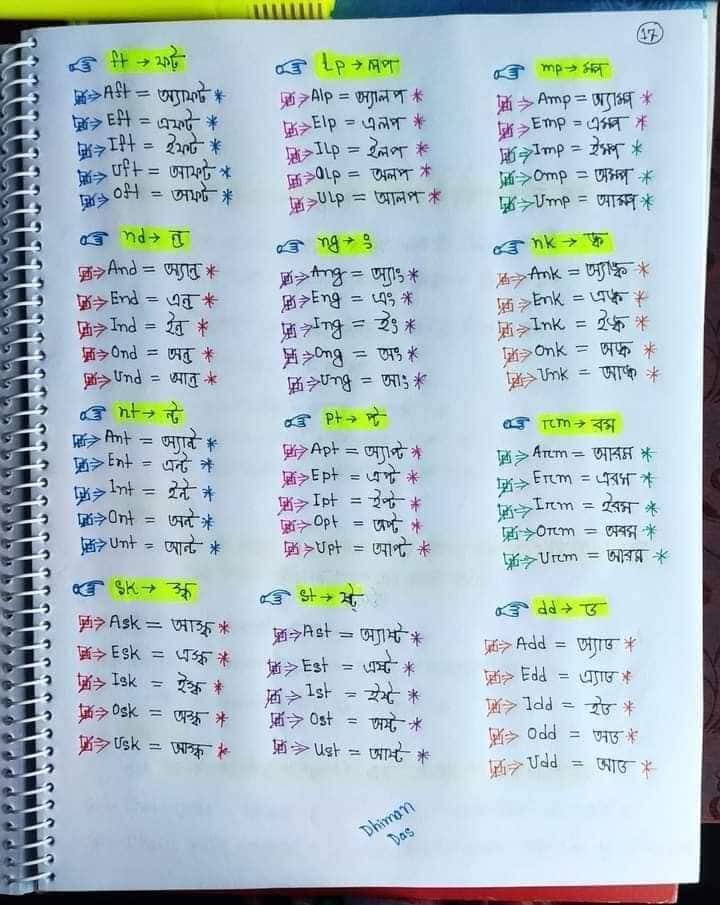 17
ft → ফ্ট
Aft = অ্যাফ্ট *
Eft = এফ্ট *
Ift = ইফ্ট *
Uft = আফ্ট *
Oft = অফ্ট *
Lp → লপ
Alp = অ্যালপ *
Elp = এলপ *
ILp = ইলপ *
OLp = অলপ *
ULp = আলপ *
mp → ম্প
Amp = অ্যাম্প *
Emp = এম্প *
Imp = ইম্প *
Omp = অম্প *
Ump = আম্প *
nd → ন্ড
And = অ্যান্ড *
End = এন্ড *
Ind = ইন্ড *
Ond = অন্ড *
Und = আন্ড *
ng → ং
Ang = অ্যাং *
Eng = এং *
Ing = ইং *
Ong = অং *
Ung = আং *
nk → ঙ্ক
Ank = অ্যাঙ্ক *
Enk = এঙ্ক *
Ink = ইঙ্ক *
Onk = অঙ্ক *
Unk = আঙ্ক *
nt → ন্ট
Ant = অ্যান্ট *
Ent = এন্ট *
Int = ইন্ট *
Ont = অন্ট *
Unt = আন্ট *
pt → প্ট
Apt = অ্যাপ্ট *
Ept = এপ্ট *
Ipt = ইপ্ট *
Opt = অপ্ট *
Upt = আপ্ট *
rm → রম
Arm = আরম *
Erm = এরম *
Irm = ইরম *
Orm = অরম *
Urm = আরম *
Sk → স্ক
Ask = আস্ক *
Esk = এস্ক *
Isk = ইস্ক *
Osk = অস্ক *
Usk = আস্ক *
St → ষ্ট
Ast = অ্যাষ্ট *
Est = এষ্ট *
Ist = ইষ্ট *
Ost = অষ্ট *
Ust = আষ্ট *
dd → ড
Add = অ্যাড *
Edd = এ্যাড *
Idd = ইড *
Odd = অড *
Udd = আড *
Dhiman
Das